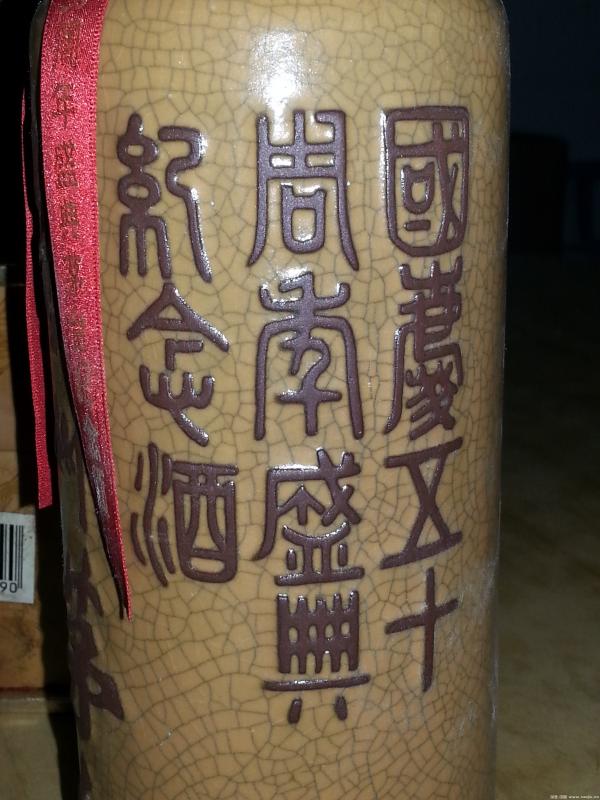 國慶五十
周年盛典
紀念酒
周年盛典
90